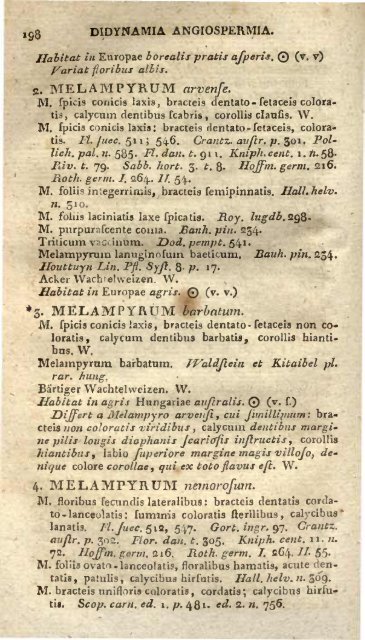 198 DIDYNAMIA ANGIOSPERMIA.
Habitat in Europae borealis pratis asperis. ☉ (v. v)
Variat floribus albis.
2. MELAMPYRUM arvense.
M. spicis conicis laxis, bracteis dentato-setaceis colora-
tis, calycum dentibus scabris, corollis clausis. W.
M. spicis conicis laxis: bracteis dentato-setaceis, colora-
tis. Fl. suec. 511; 546. Crantz. austr. p. 301. Pol-
lich. pal. n. 585. Fl. dan. t. 911. Kniph. cent. 1. n. 58.
Riv. t. 79. Sabb. hort. 3. t. 8. Hoffm. germ. 216.
Roth. germ. I. 264. II. 54.
M. foliis integerrimis, bracteis semipinnatis. Hall. helv.
n. 310.
M. foliis laciniatis laxe spicatis. Roy. lugdb. 298.
M. purpurascente coma. Bauh. pin. 234.
Triticum vaccinum. Dod. pempt. 541.
Melampyrum lanuginosum baeticum. Bauh. pin. 234.
Houttuyn Lin. Pfl. Syst. 8. p. 17.
Acker Wachtelweizen. W.
Habitat in Europae agris. ☉ (v. v.)
*3. MELAMPYRUM barbatum.
M. spicis conicis laxis, bracteis dentato-setaceis non co-
loratis, calycum dentibus barbatis, corollis hianti-
bus. W.
Melampyrum barbatum. Waldstein et Kitaibel pl.
rar. hung.
Bärtiger Wachtelweizen. W.
Habitat in agris Hungariae australis. ☉ (v. s.)
Differt a Melampyro arvensi, cui simillimum: bra-
cteis non coloratis viridibus, calycum dentibus margi-
ne pilis longis diaphanis scariosis instructis, corollis
hiantibus, labio superiore margine magis villoso, de-
nique colore corollae, qui ex toto flavus est. W.
4. MELAMPYRUM nemorosum.
M. floribus secundis lateralibus: bracteis dentatis corda-
to-lanceolatis: summis coloratis sterilibus, calycibus
lanatis. Fl. suec. 512, 547. Gort. ingr. 97. Crantz.
austr. p. 302. Flor. dan. t. 305. Kniph. cent. 11. n.
72. Hoffm. germ. 216. Roth. germ. I. 264. II. 55.
M. foliis ovato-lanceolatis, floralibus hamatis, acute den-
tatis, patulis, calycibus hirsutis. Hall. helv. n. 309.
M. bracteis unifloris coloratis, cordatis; calycibus hirsu-
tis. Scop. carn. ed. 1. p. 481. ed. 2. n. 756.